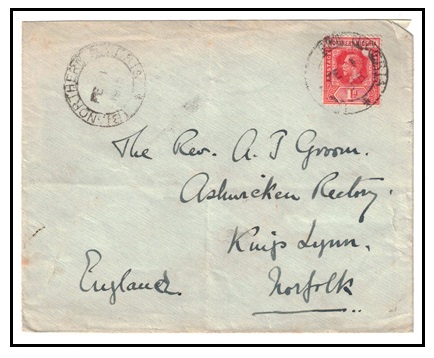 NORTHERN
POSTAGE
1d
The Rev. A. T. Groom.
Ashwicken Rectory.
Kings Lynn.
England.
Norfolk